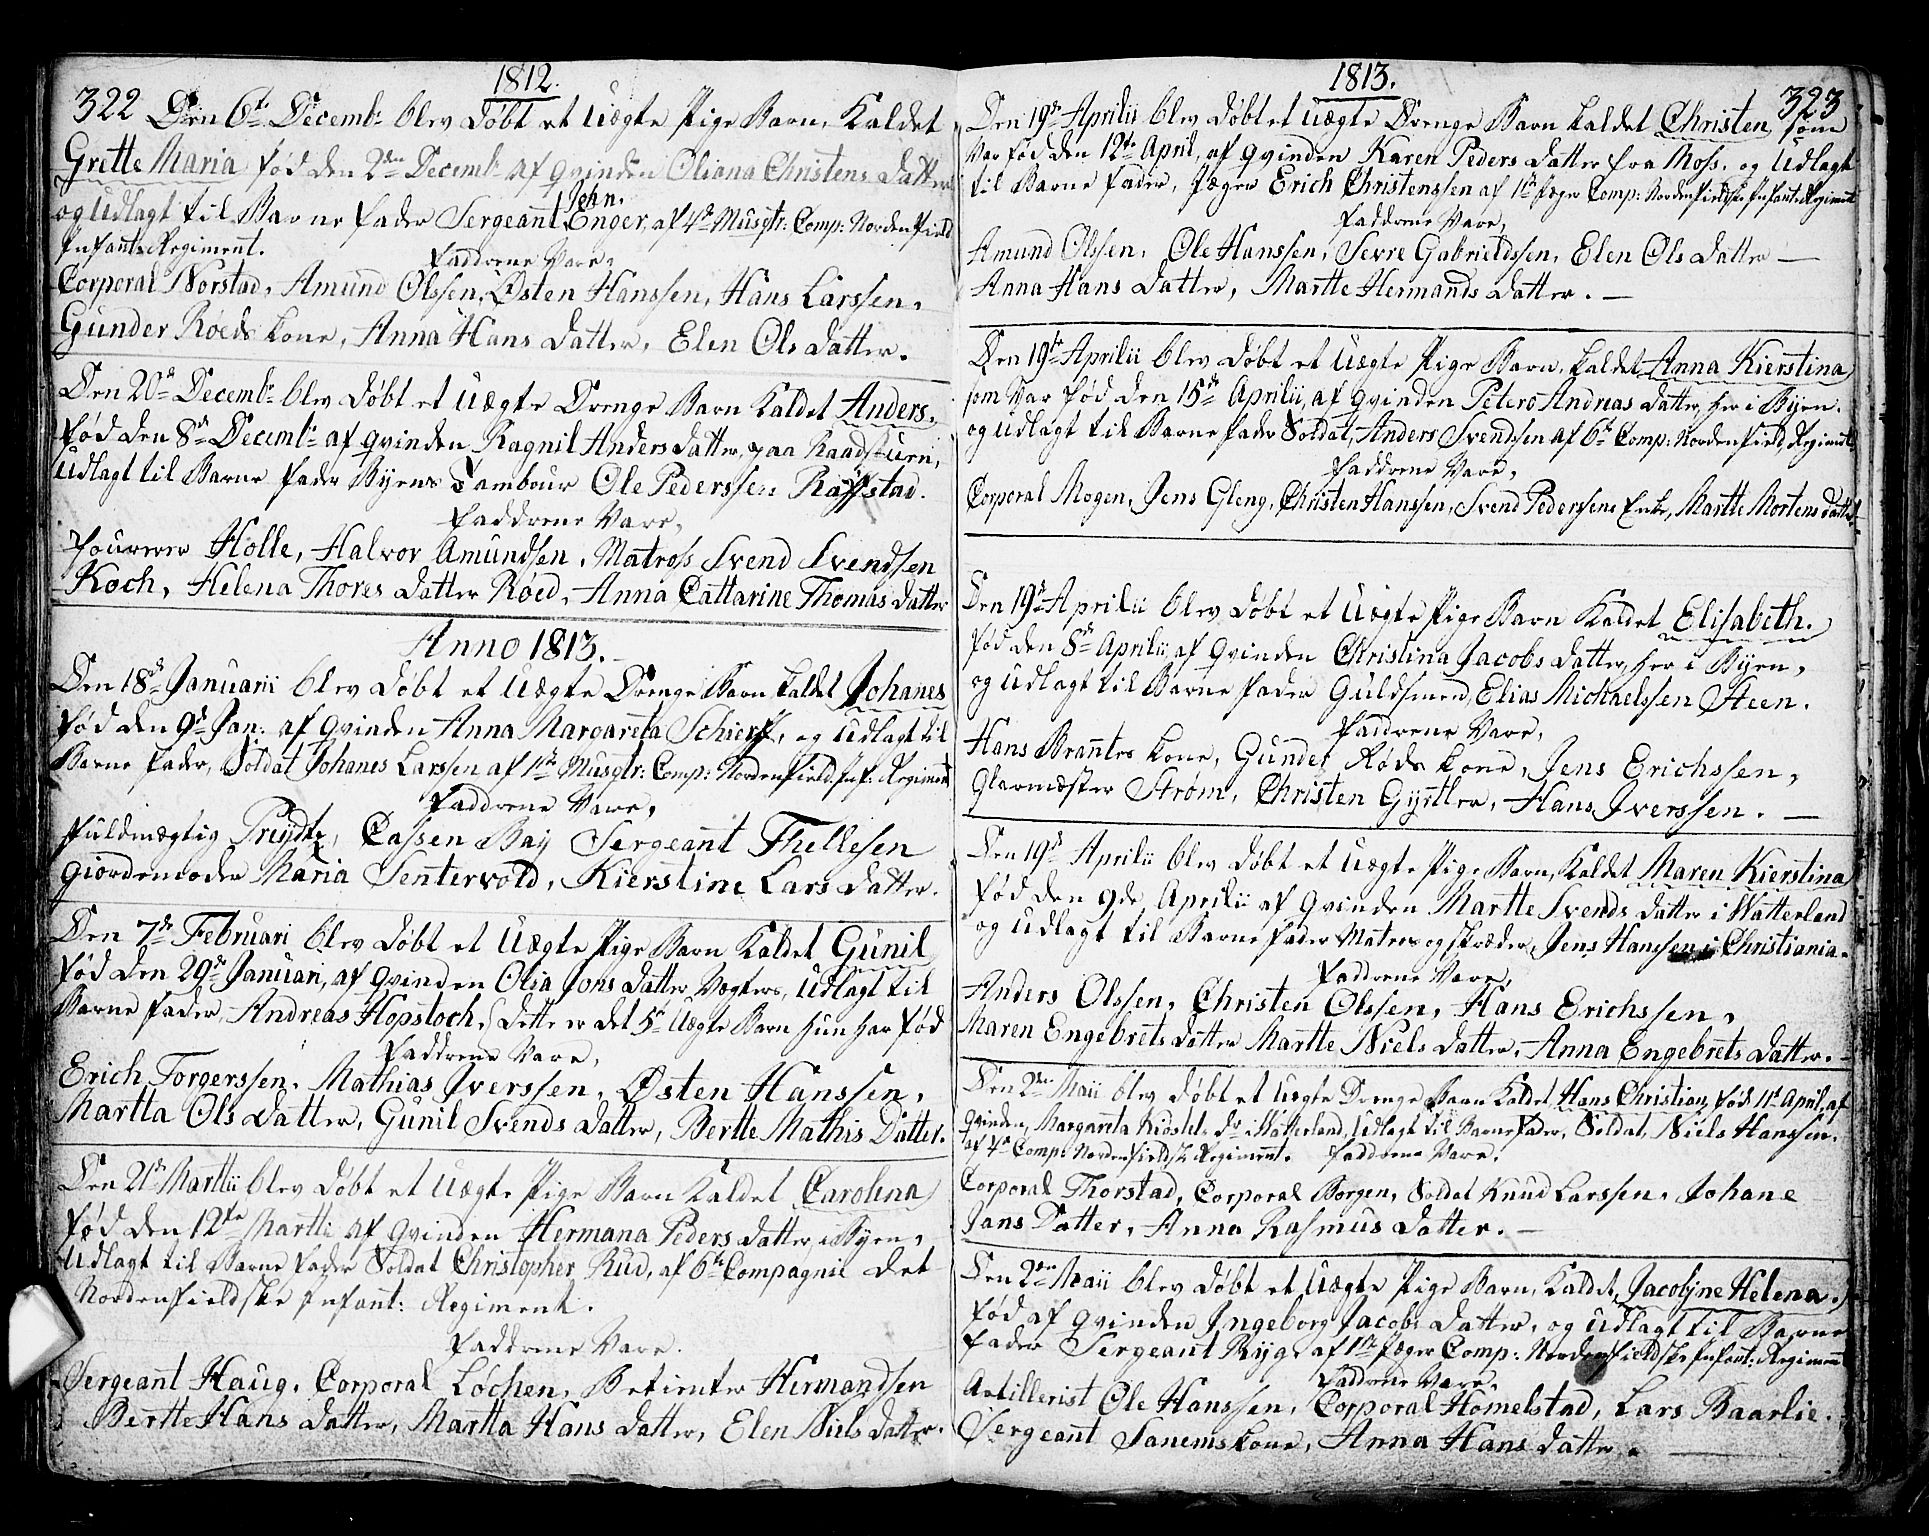 1812.
322 Den 6te Decembr blev døbt et Uægte Pige Barn, Kaldet
Grette Maria fød den 2den Decembr af qvinden Oliana Christens datter
John.
og Udlagt til Barne fader Sergeant Enger, af 4de Musqtr: Comp: Nordenfield
Infant: Regiment.
Faddrene Vare,
Corporal Norstad, Amund Olssen, Østen Hanssen, Hans Larssen,
Gunder Røeds kone, Anna Hans datter, Elen Ols datter.
Den 20de Decembr blev døbt et Uægte Drenge Barn kaldet Anders,
fød den 8de Decembr af qvinden Ragnil Anders datter, paa Raadstuen,
Udlagt til Barne fader Byens Tambour Ole Pederssen Raffstad.
Faddrene Vare,
Fourerer Holle, Halvor Amundsen, Matross Svend Svendsen
Koch, Helena Thores datter Røed, Anna Cattarine Thomas datter
Anno 1813.
Den 18de Januarii blev døbt et Uægte Drenge Barn kaldet Johanes
fød den 9de Jan: af qvinden Anna Margareta Schierf, og Udlagt til
Barne fader, Soldat Johanes Larssen af 1ste Musqtr: Comp: Nordenfield. Inf: Regiment
Faddrene Vare,
Fuldmægtig Preydtz, Cassen Bay Sergeant Thellesen
Giordemoder Maria Sentervold, Kierstine Lars datter.
Den 7de Februari blev døbt et Uægte Pige Barn Kaldet Gunil
fød den 29de Januari, af qvinden Olia Jons datter Vogters, Udlagt til
Barne fader, Andreas Hopstoch, dette er det 5te Uægte Barn hun har fød
Faddrene Vare,
Erich Torgerssen, Mathias Iverssen, Østen Hanssen,
Martta Ols datter, Gunil Svends datter, Bertte Mathis Datter.
Den 21de Marttii blev døbt et Uægte Pige Barn Kaldet Carolina
fød den 12te Martti af qvinden Hermana Peders datter i Byen,
Udlagt til Barne fader Soldat Christopher Rud, af 6te Compagnie det
Nordenfieldske Infant: Regiment.
Faddrene Vare.
Sergeant Haug, Corporal Løchen, Betienter Hermandsen
Bertte Hans datter, Martta Hans datter, Elen Niels datter.
1813.
323
Den 19de Aprilii blev døbt et Uægte Drenge Barn kaldet Christen, som
Var fød den 12te April, af qvinden Karen Peders datter fra Moss, og Udlagt
til Barne fader, Jæger Erich Christenssen af 1ste Jeger Comp: Nordenfieldske Infant: Regiment
Faddrene Vare,
Amund Olssen, Ole Hanssen, Sevre Gabrieldssen, Elen Ols datter
Anna Hans datter, Martte Hermands datter.
Den 19de Aprilii blev døbt et Uægte Pige Barn, kaldet Anna Kierstina
som Var fød den 15de Aprilii, af qvinden Petero Andreas datter, her i Byen.
og Udlagt til Barne fader Soldat, Anders Svendssen af 6te Comp: Nordenfield, Regiment
Faddrene Vare,
Corporal Mogen, Jens Gleng, Christen Hanssen, Svend Pederssens Enke, Martte Mortens datter
Den 19de Aprilii blev døbt et Uægte Pige Barn Kaldet Elisabeth.
fød den 8de Aprilii af qvinden Christina Jacobs datter, her i Byen,
og Udlagt til Barne fader Guldsmed, Elias Michaelssen Steen.
Faddrene Vare,
Hans Brantes kone, Gunder Røds kone, Jens Erichssen,
Glarmæster Strøm, Christen Gyrtler, Hans Iverssen.
Den 19de Aprilii blev døbt et Uægte Pige Barn, Kaldet Maren Kierstina
fød den 9de Aprilii af qvinden Martte Svends datter i Watterland
og Udlagt til Barne fader Matros og skræder, Jens Hanssen i Christiania.
Faddrene Vare,
Anders Olssen, Christen Olssen, Hans Erichssen,
Maren Engebrets datter Martte Niels datter, Anna Engebrets datter.
Den 2den Maii blev døbt et Uægte Drenge Barn Kaldet, Hans Christian, fød 11te April, af
qvinden, Margareta Kiøstels dr i Watterland, Udlagt til Barne fader, Soldat, Niels Hanssen.
af 4de Comp: Nordenfieldsk Regiment. Faddrene Vare.
Corporal Thorstad, Corporal Borgen, Soldat Knud Larssen, Johane
Jans Datter, Anna Rasmus datter.
Den 2den Maii blev døbt et Uægte Pige Barn, Kaldet, Jacoljne Helena,
fød af qvinden Ingeborg Jacobs datter, og Udlagt til Barne
fader Sergeant Ryge af 1ste Jæger Comp: Nordenfieldske Infant: Regiment
Faddrene Vare,
Artillerist Ole Hanssen, Corporal Homelstad, Lars Baarlie.
Sergeant Sanems kone, Anna Hans datter.